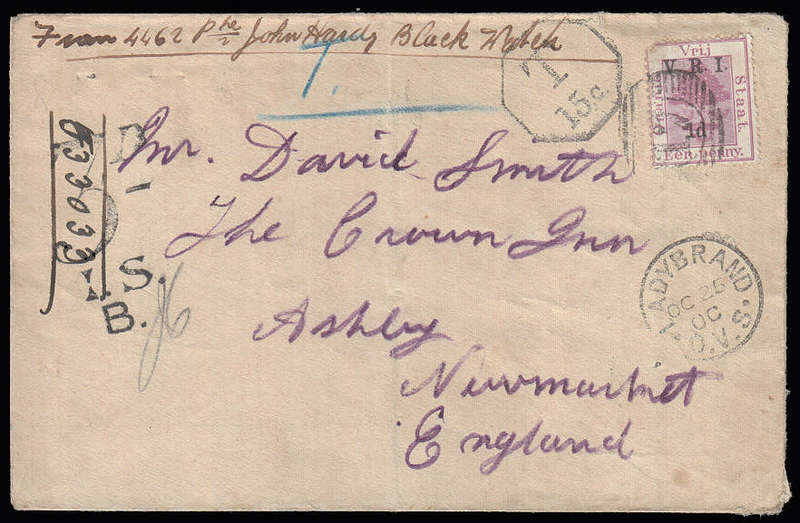 From 4462 Pte John Hardy Black Watch
T
15c.
Vrij
V. R. I.
Staat
1d
Een penny.
33033
Mr. David Smith
The Crown Inn
Ashby
Newmarket
England
S.
B.
LADYBRAND
OC 25
OC
O.V.S.